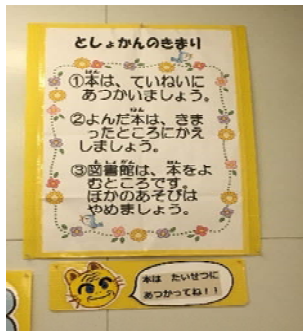 としょかんのきまり
①本は、ていねいに
あつかいましょう。
②よんだ本は、きま
ったところにかえ
しましょう。
③図書館は、本をよ
むところです。
ほかのあそびは
やめましょう。
本は たいせつに
あつかってね！！